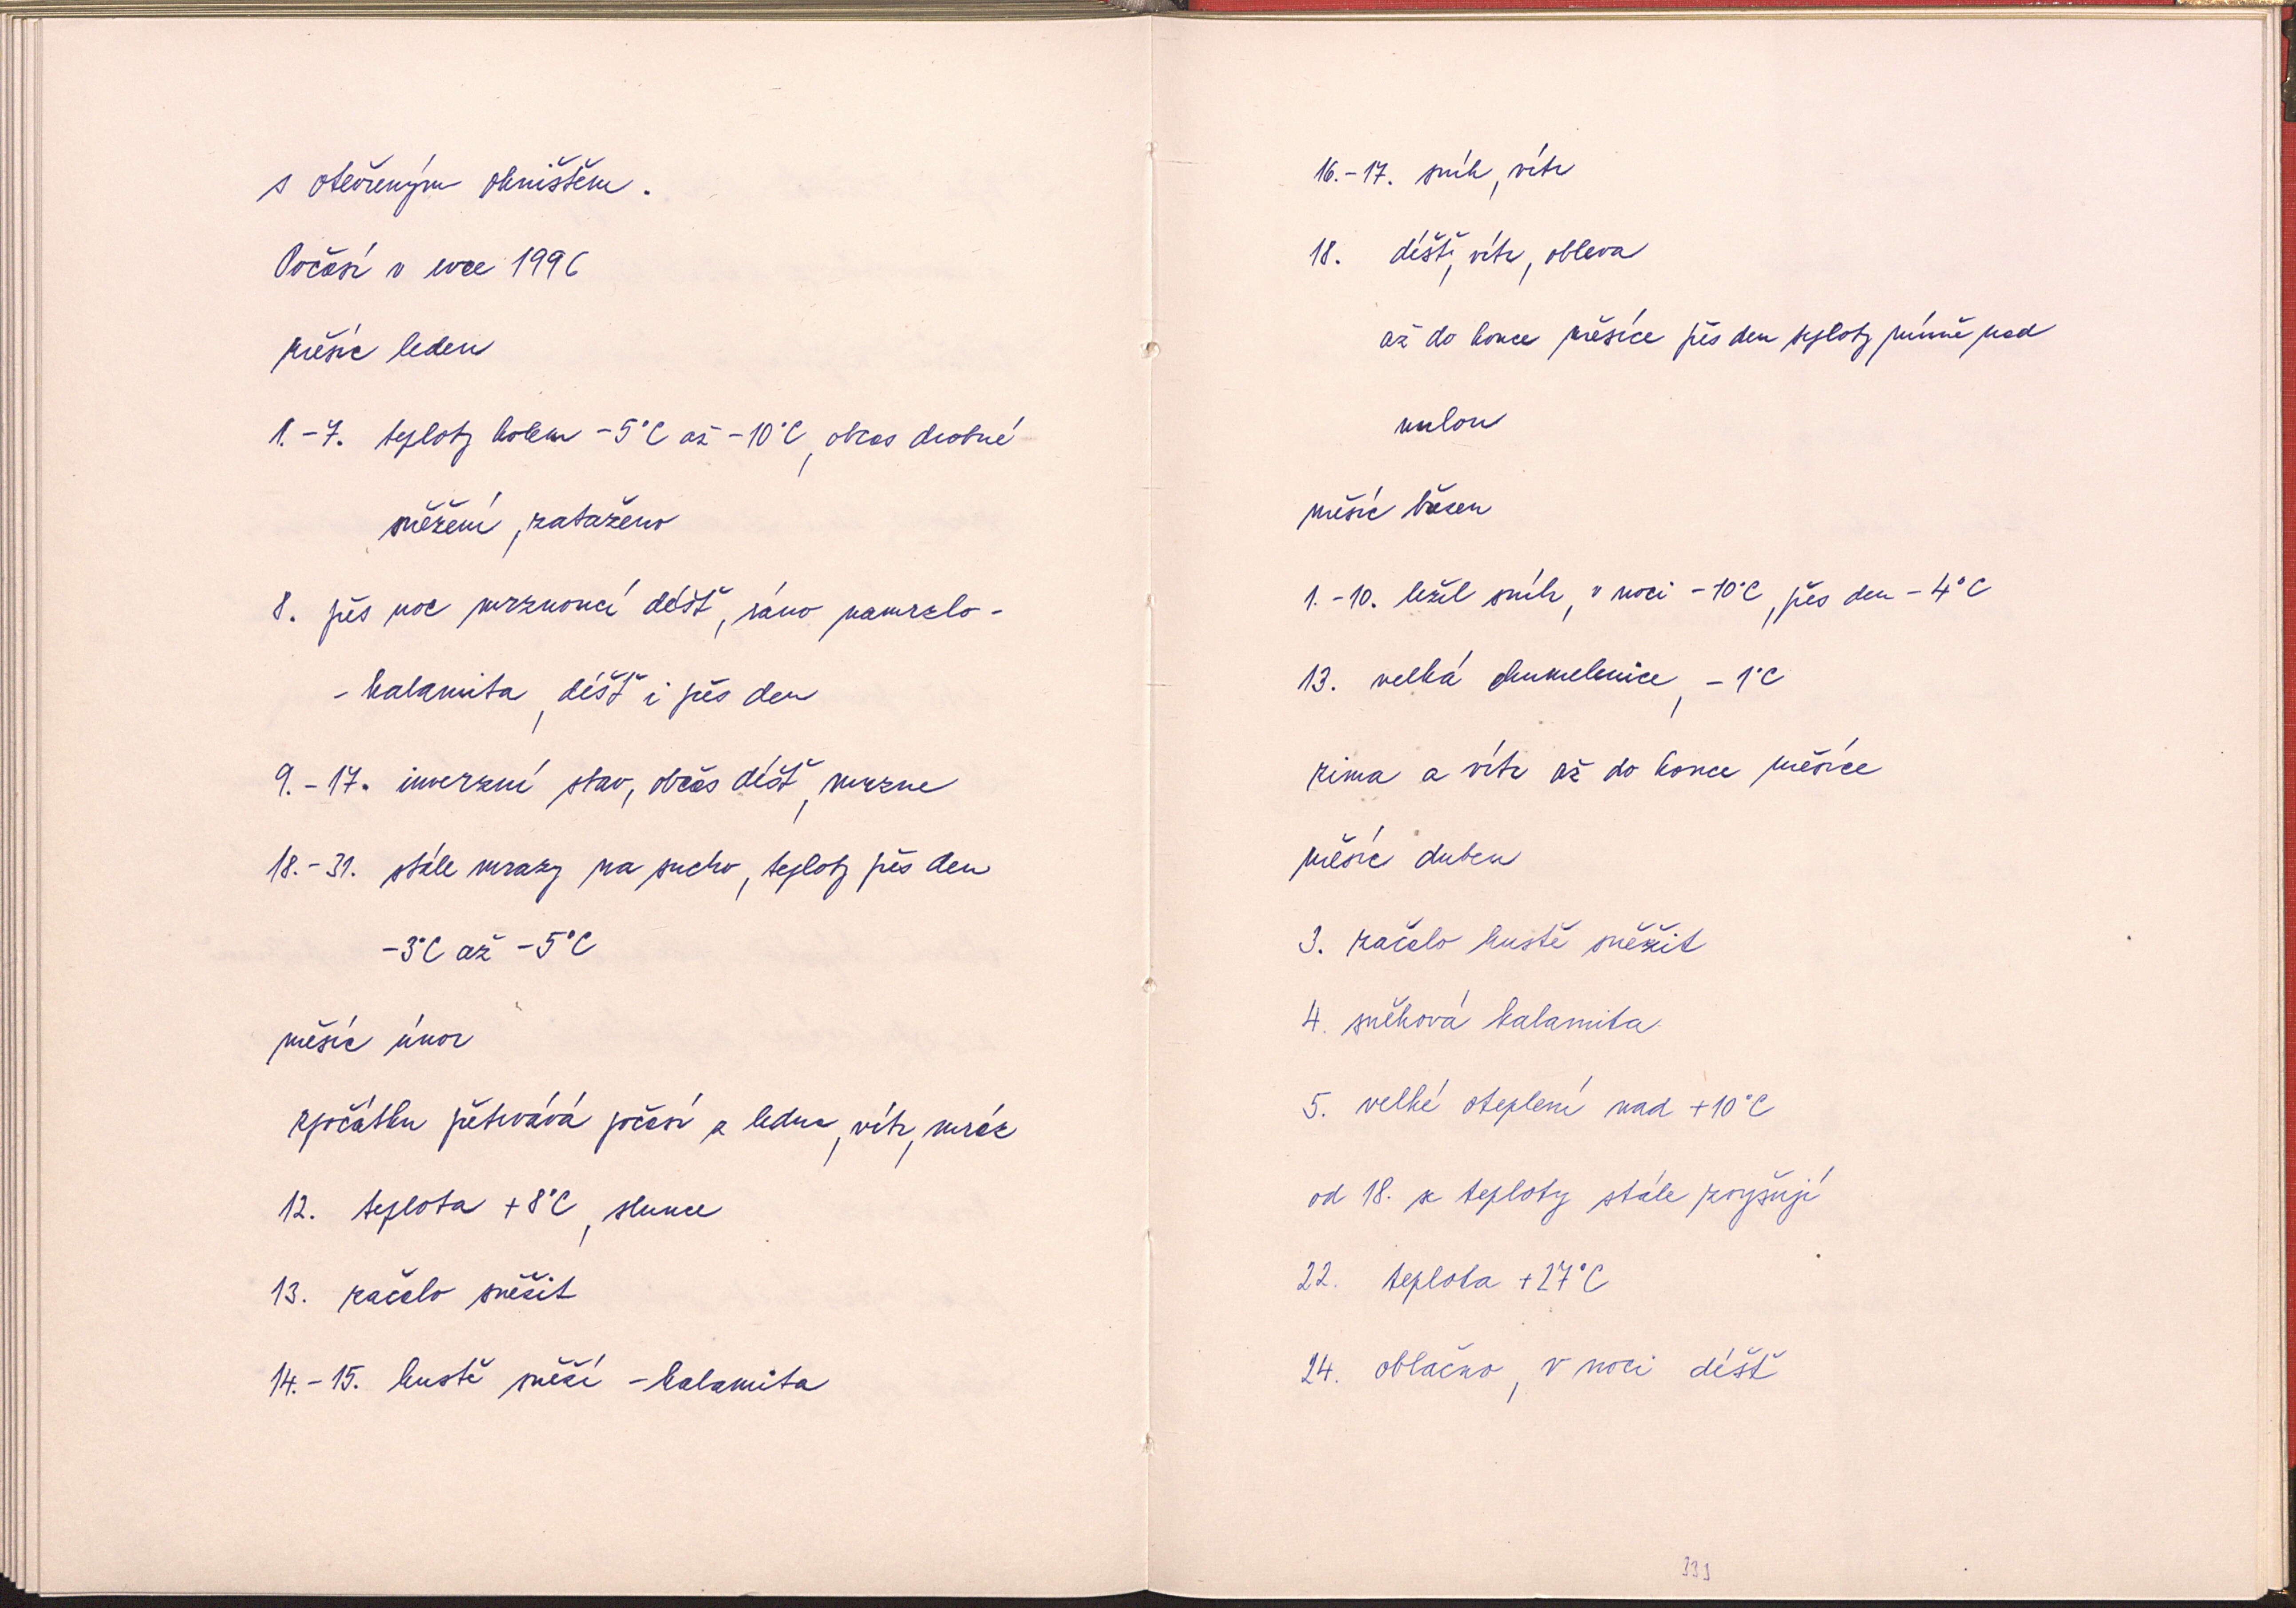 s otevřeným ohništěm.
Počasí v roce 1996
měsíc leden
1.-7. teploty kolem -5°C až -10°C, občas drobné
sněžení, zataženo
8. přes noc mrznoucí déšť, ráno namrzlo -
- kalamita, déšť i přes den
9.-17. inverzní stav, občas déšť, mrzne
18.-31. stále mrazy na sucho, teploty přes den
-3°C až -5°C
měsíc únor
zpočátku přetrvává počasí z ledna, vítr, mráz
12. teplota +8°C, slunce
13. začalo sněžit
14.-15. hustě sněží - kalamita
16.-17. sníh, vítr
18. déšť, vítr, obleva
až do konce měsíce přes den teploty mírně nad
nulou
měsíc březen
1.-10. ležel sníh, v noci -10°C, přes den -4°C
13. velká chumelenice, -1°C
zima a vítr až do konce měsíce
měsíc duben
3. začalo hustě sněžit
4. sněhová kalamita
5. velké oteplení nad +10°C
od 18. se teploty stále zvyšují
22. teplota +27°C
24. oblačno, v noci déšť
333